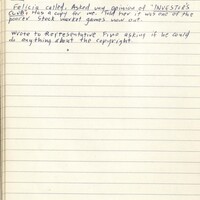 Felicia called. Asked my opinion of "INVESTOR'S
a copy for me. Told her it was one of the
poorer stock market games now out.
Wrote to Representative Fine asking if he could
do anything about the copyright.